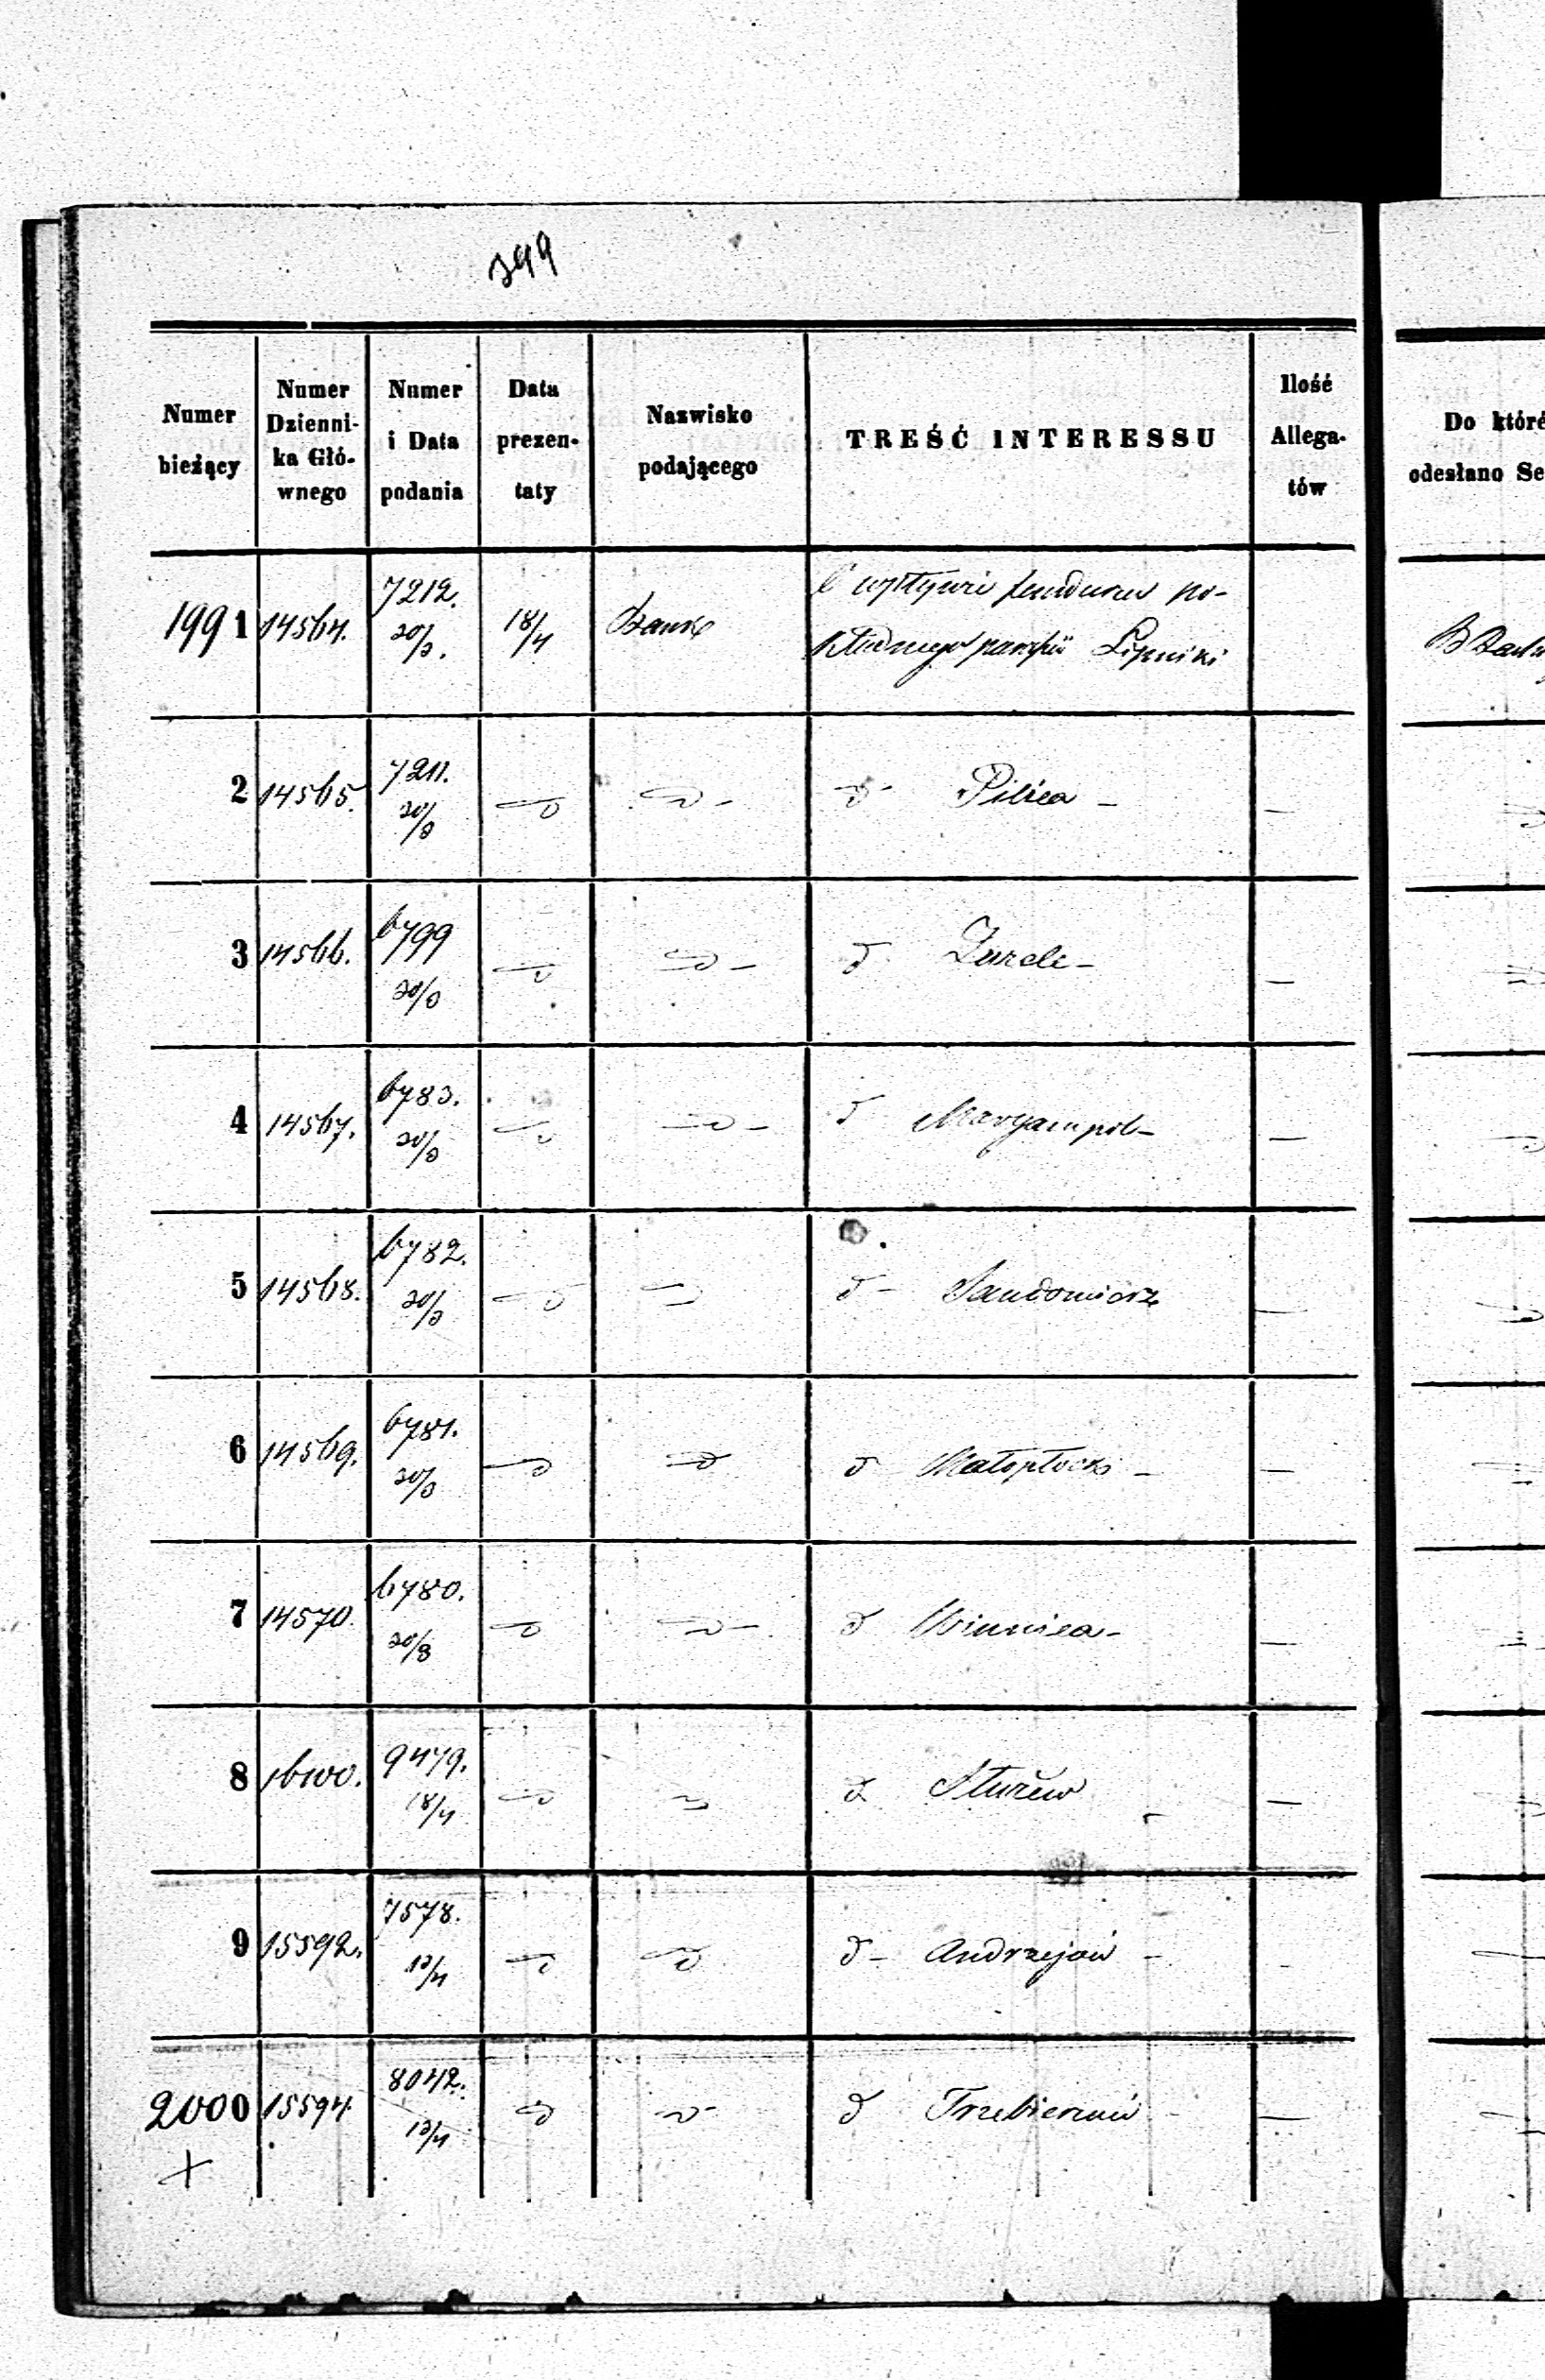 399
Numer bieżący
Numer Dzienni-ka Głó-wnego
Numer i Data podania
Data prezen-taty
Nazwisko podającego
TREŚĆ INTERESSU
Ilość Allega-tów
Do któré
odesłano Se
1991 14564. 7212. 20/3. 18/4 Bank O wpływie funduszu po-
kładnego parafii Lipniki
2 14565. 7211. 20/3 d d - d - Pilica -
3 14566. 6799 20/3 d d - d -
4 14567. 6783. 20/3 d d - d Maryampol -
5 14568. 6782. 20/3 d d d - Sandomierz
6 14569. 6781. 20/3 d d d Małopłocki -
7 14570. 6780. 20/3 d d - d Winnica -
8 16100. 9479. 18/4 d d d Stużew
9 15592. 7578. 13/4 d d d - Andrzejów -
2000 15594. 8042. 13/4 d d - d -
+